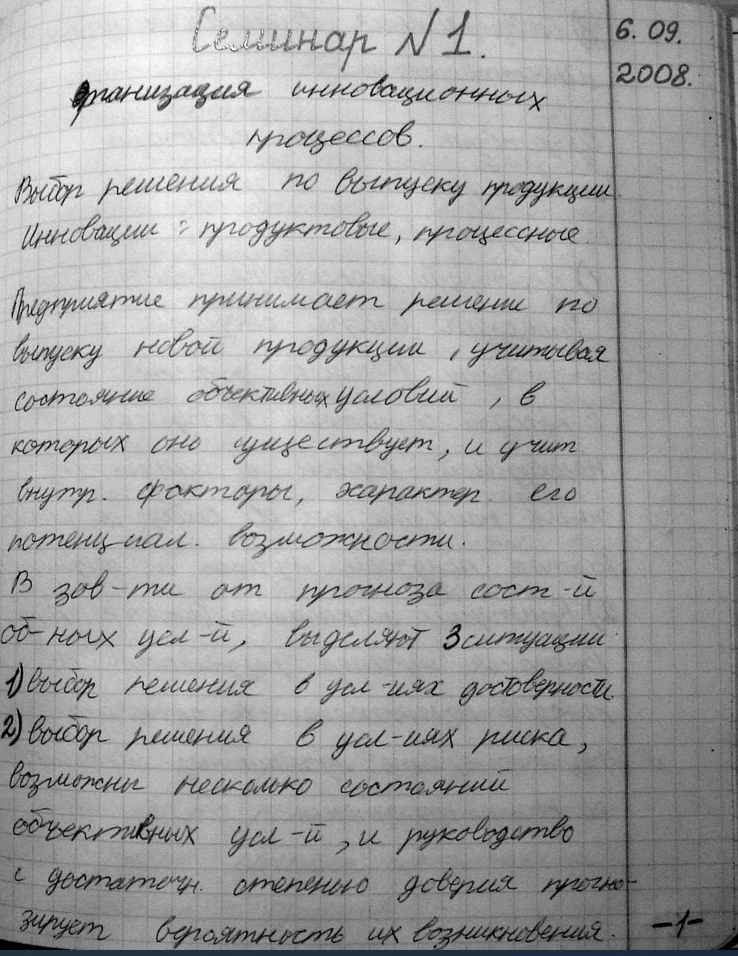 Семинар N 1.
6. 09.
2008.
Организация инновационных
процессов.
Выбор решения по выпуску продукции.
Инновации : продуктовые, процессные
Предприятие принимает решение по
выпуску новой продукции, учитывая
состояние объективных условий, в
которых оно существует, и учит
внутр. факторы, характер. его
потенциал. возможности.
В зав-ти от прогноза сост-й
об-ных усл-й, выделяют 3 ситуации:
1) выбор решения в усл-иях достоверности.
2) выбор решения в усл-иях риска,
возможны несколько состояний
объективных усл-й, и руководство
с достаточн. степенью доверия прогно-
зирует вероятность их возникновения.
-1-